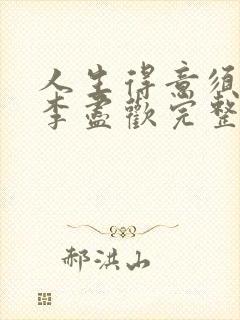 人生得意须
李盡歡完整
郝洪山